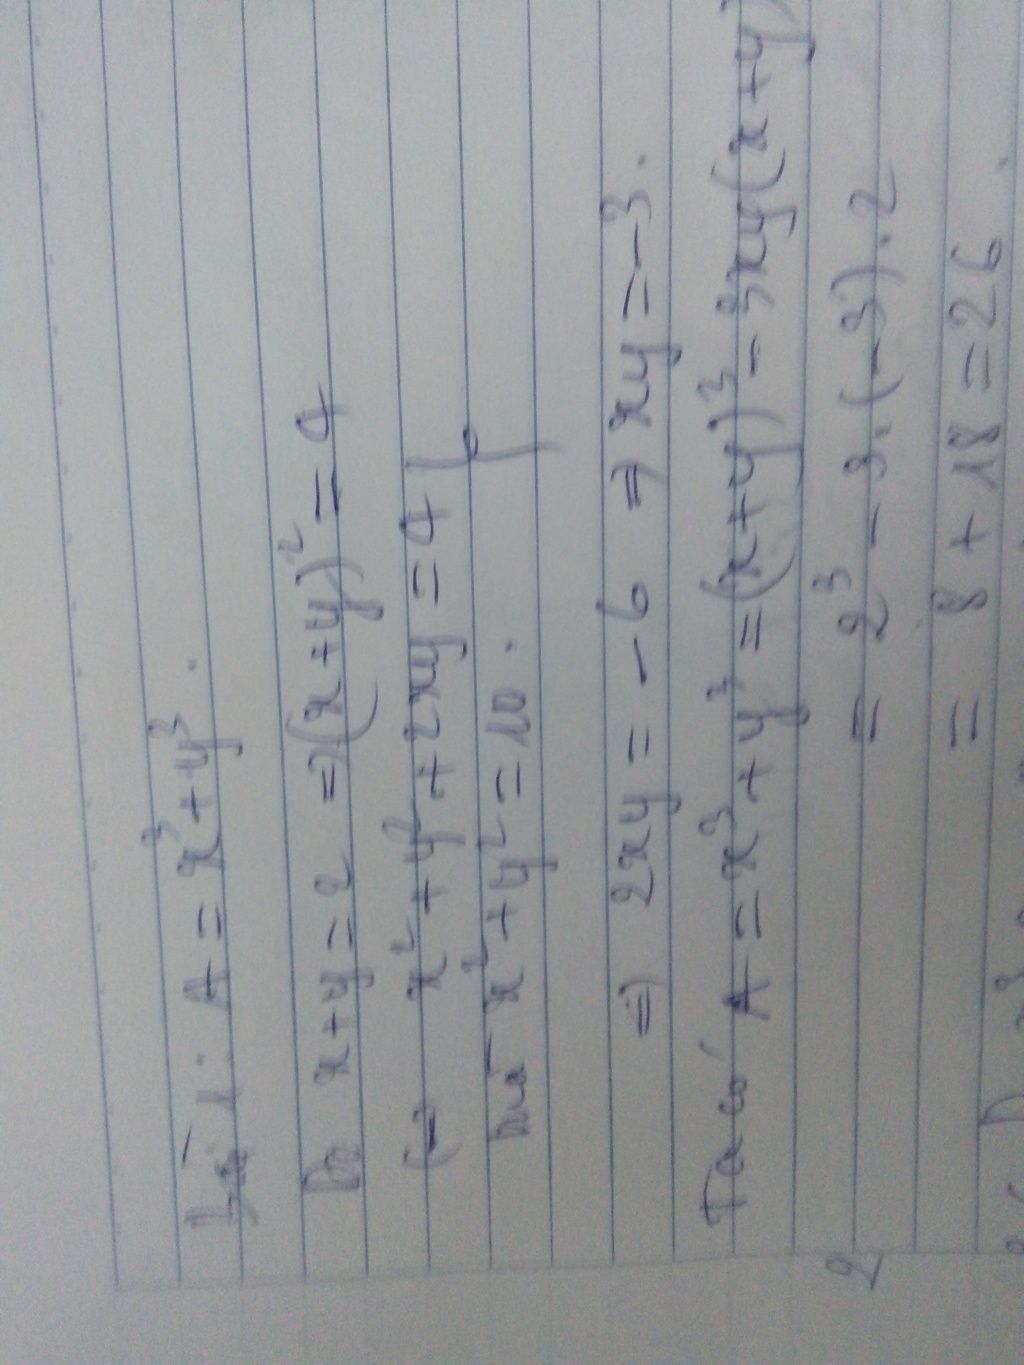 Bài 1: A = x³ + y³.
Do x + y = 2 ⇒ (x + y)² = 4
⇔ x² + y² + 2xy = 4 }
mà x² + y² = 10.
⇒ 2xy = -6 ⇒ xy = -3.
Ta có A = x³ + y³ = (x + y)³ - 3xy(x + y)
= 2³ - 3.(-3).2
= 8 + 18 = 26.